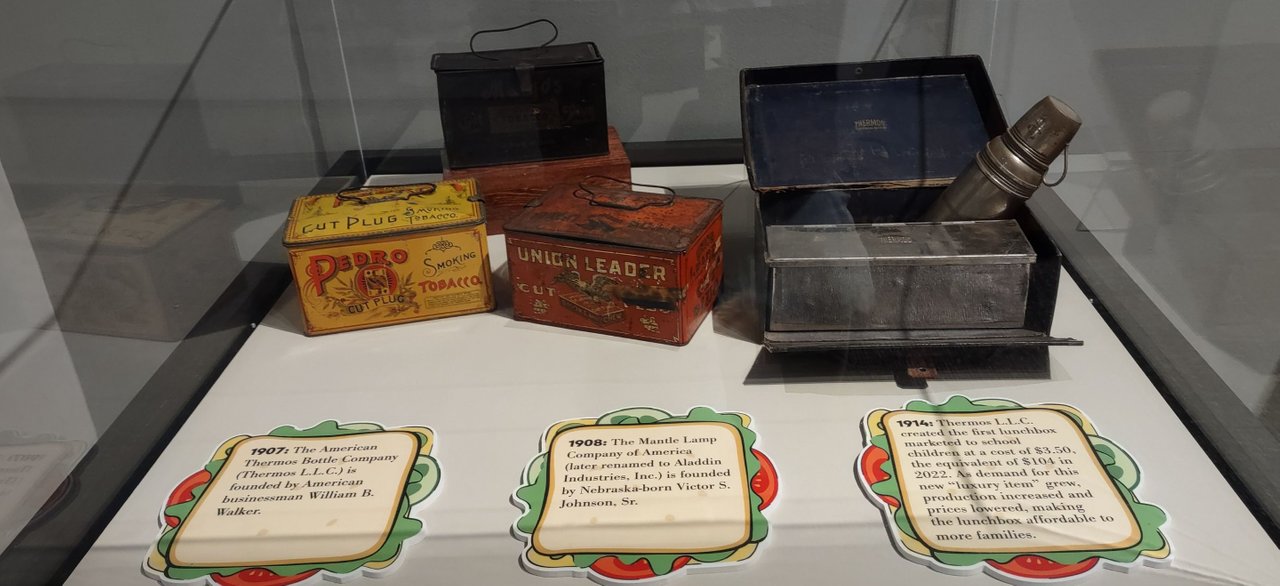 CUT PLUG SMOKING TOBACCO.
PEDRO
CUT PLUG
SMOKING
TOBACCO
UNION LEADER
CUT
THERMOS
THERMOS
1907: The American
Thermos Bottle Company
(Thermos L.L.C.) is
founded by American
businessman William B.
Walker.
1908: The Mantle Lamp
Company of America
(later renamed to Aladdin
Industries, Inc.) is founded
by Nebraska-born Victor S.
Johnson, Sr.
1914: Thermos L.L.C.
created the first lunchbox
marketed to school
children at a cost of $3.50,
the equivalent of $104 in
2022. As demand for this
new “luxury item” grew,
production increased and
prices lowered, making
the lunchbox affordable to
more families.